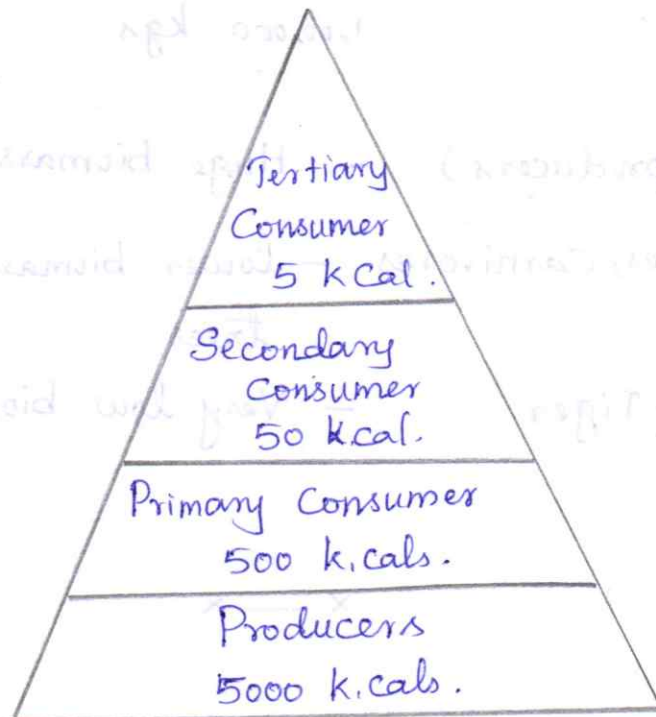 Tertiary
Consumer
5 kCal.
Secondary
Consumer
50 k.cal.
Primary Consumer
500 k.cals.
Producers
5000 k.cals.